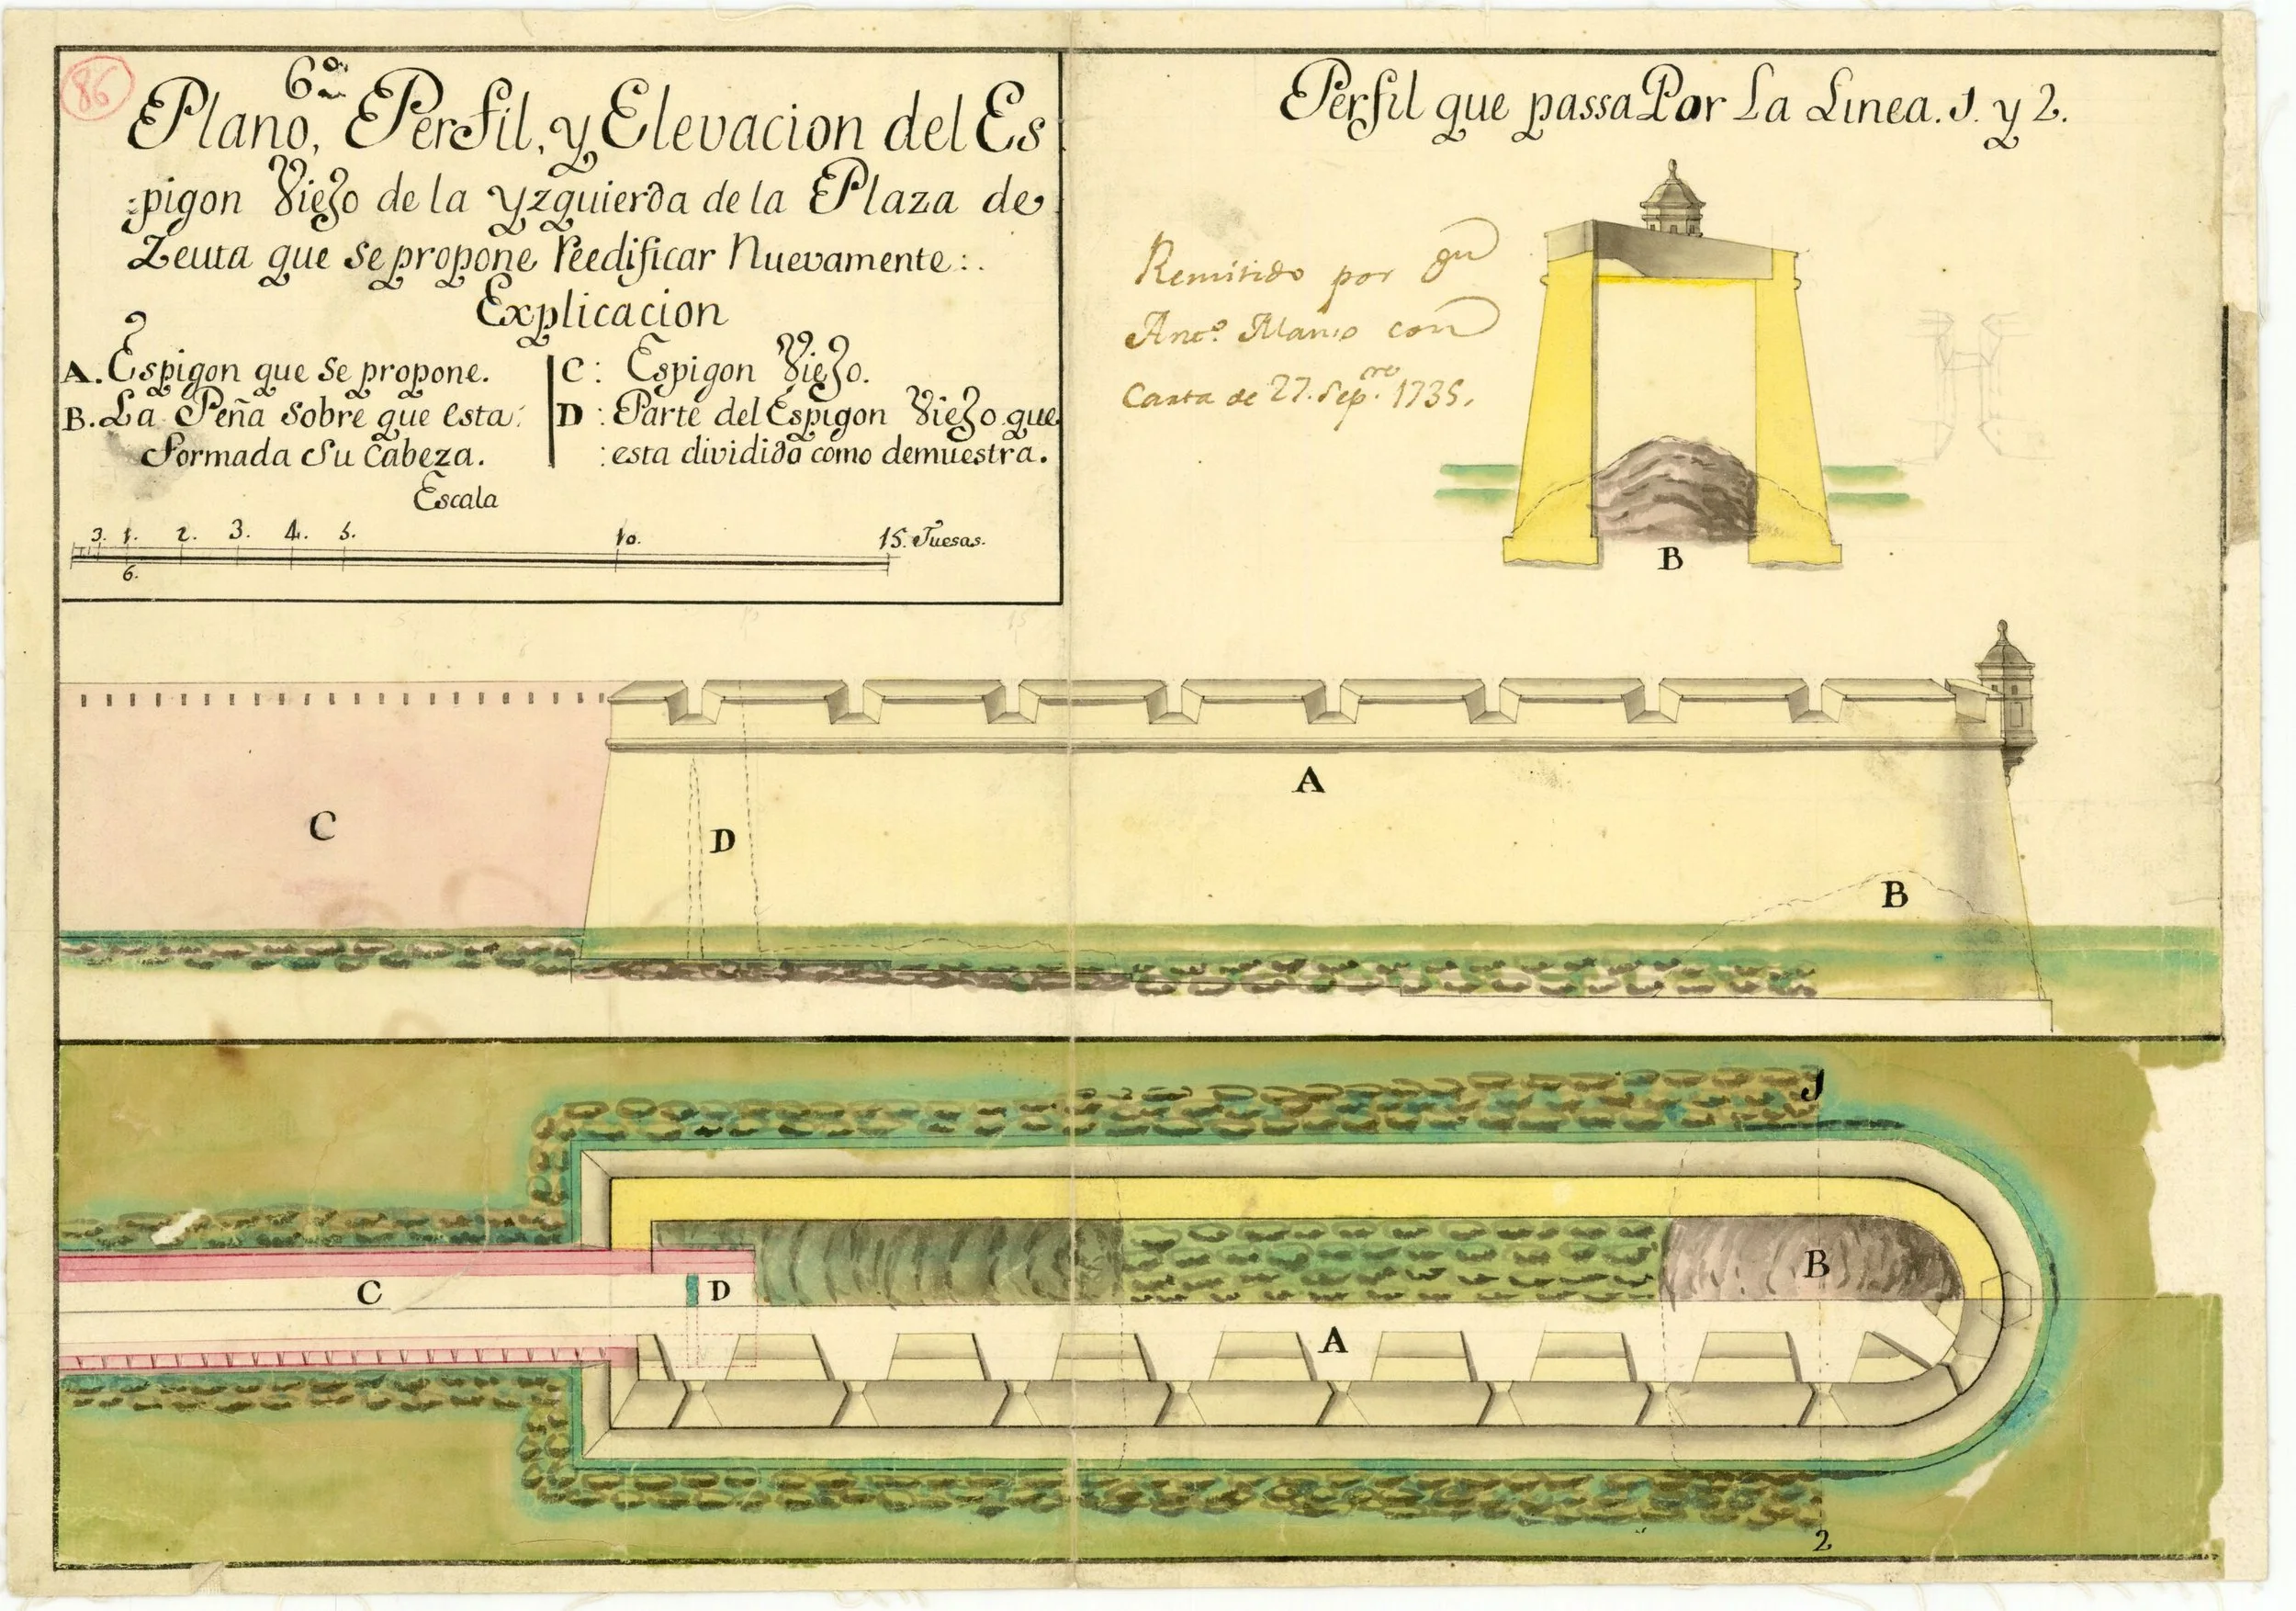 86
6º
Plano, Perfil, y Elevacion del Es
:pigon Viejo de la yzquierda de la Plaza de
Zeuta que se propone reedificar Nuevamente:.
Explicacion
A. Espigon que se propone.
B. La Peña sobre que esta:
formada su cabeza.
C: Espigon Viejo.
D: Parte del Espigon Viejo que
:esta dividido como demuestra.
Escala
3. 1. 2. 3. 4. 5. 10. 15. Tuesas.
6.
Perfil que passa Por La Linea. 1. y 2.
Remitido por
Antº. con
Carta de 27. Sepre. 1735.
B
A
C
D
B
1
C
D
B
A
2